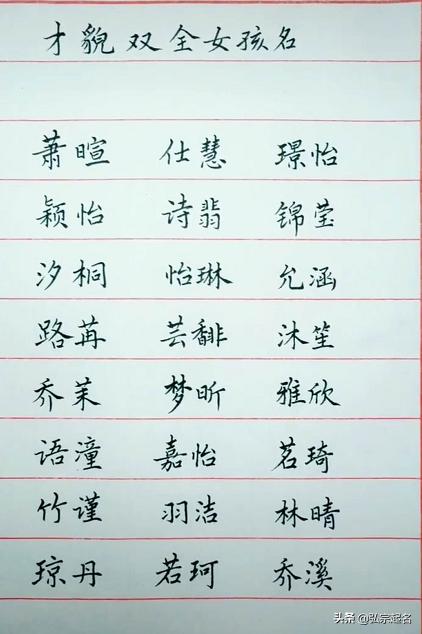 才貌双全女孩名
萧暄 仕慧 璟怡
颖怡 诗翡 锦莹
汐桐 怡琳 允涵
路苒 芸馡 沐笙
乔茉 梦昕 雅欣
语潼 嘉怡 茗琦
竹谨 羽洁 林晴
琼丹 若珂 乔溪
头条 @弘宗起名